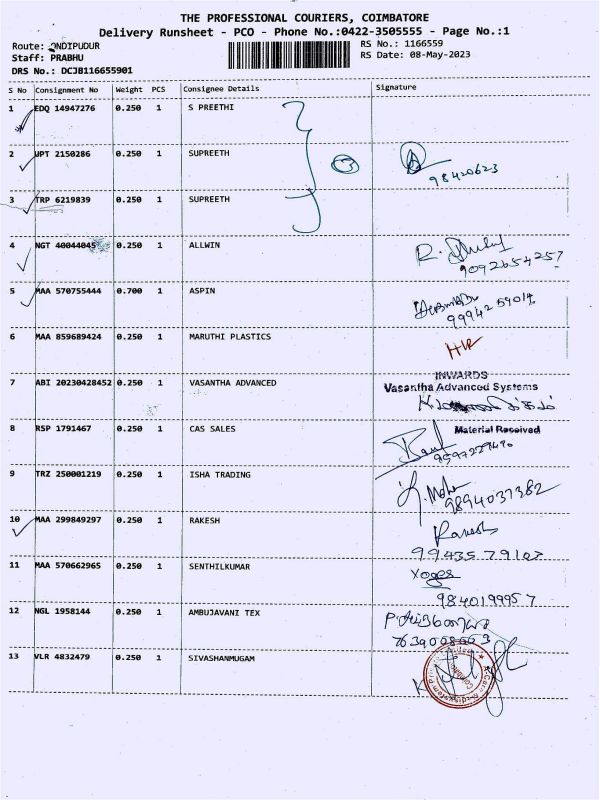 THE PROFESSIONAL COURIERS, COIMBATORE
Delivery Runsheet - PCO - Phone No.:0422-3505555 - Page No.:1
Route: ONDIPUDUR
RS No.: 1166559
Staff: PRABHU
RS Date: 08-May-2023
DRS No.: DCJB116655901
S No Consignment No Weight PCS Consignee Details Signature
1 EDQ 14947276 0.250 1 S PREETHI
2 UPT 2150286 0.250 1 SUPREETH
3 TRP 6219839 0.250 1 SUPREETH
4 NGT 40044045 0.250 1 ALLWIN
9092654257
5 MAA 570755444 0.700 1 ASPIN
6 MAA 859689424 0.250 1 MARUTHI PLASTICS
INWARDS
7 ABI 20230428452 0.250 1 VASANTHA ADVANCED Vasantha Advanced Systems
8 RSP 1791467 0.250 1 CAS SALES Material Received
9 TRZ 250001219 0.250 1 ISHA TRADING
9894037382
10 MAA 299849297 0.250 1 RAKESH
99435 79107
11 MAA 570662965 0.250 1 SENTHILKUMAR Yoges
9840199957
12 NGL 1958144 0.250 1 AMBUJAVANI TEX
13 VLR 4832479 0.250 1 SIVASHANMUGAM